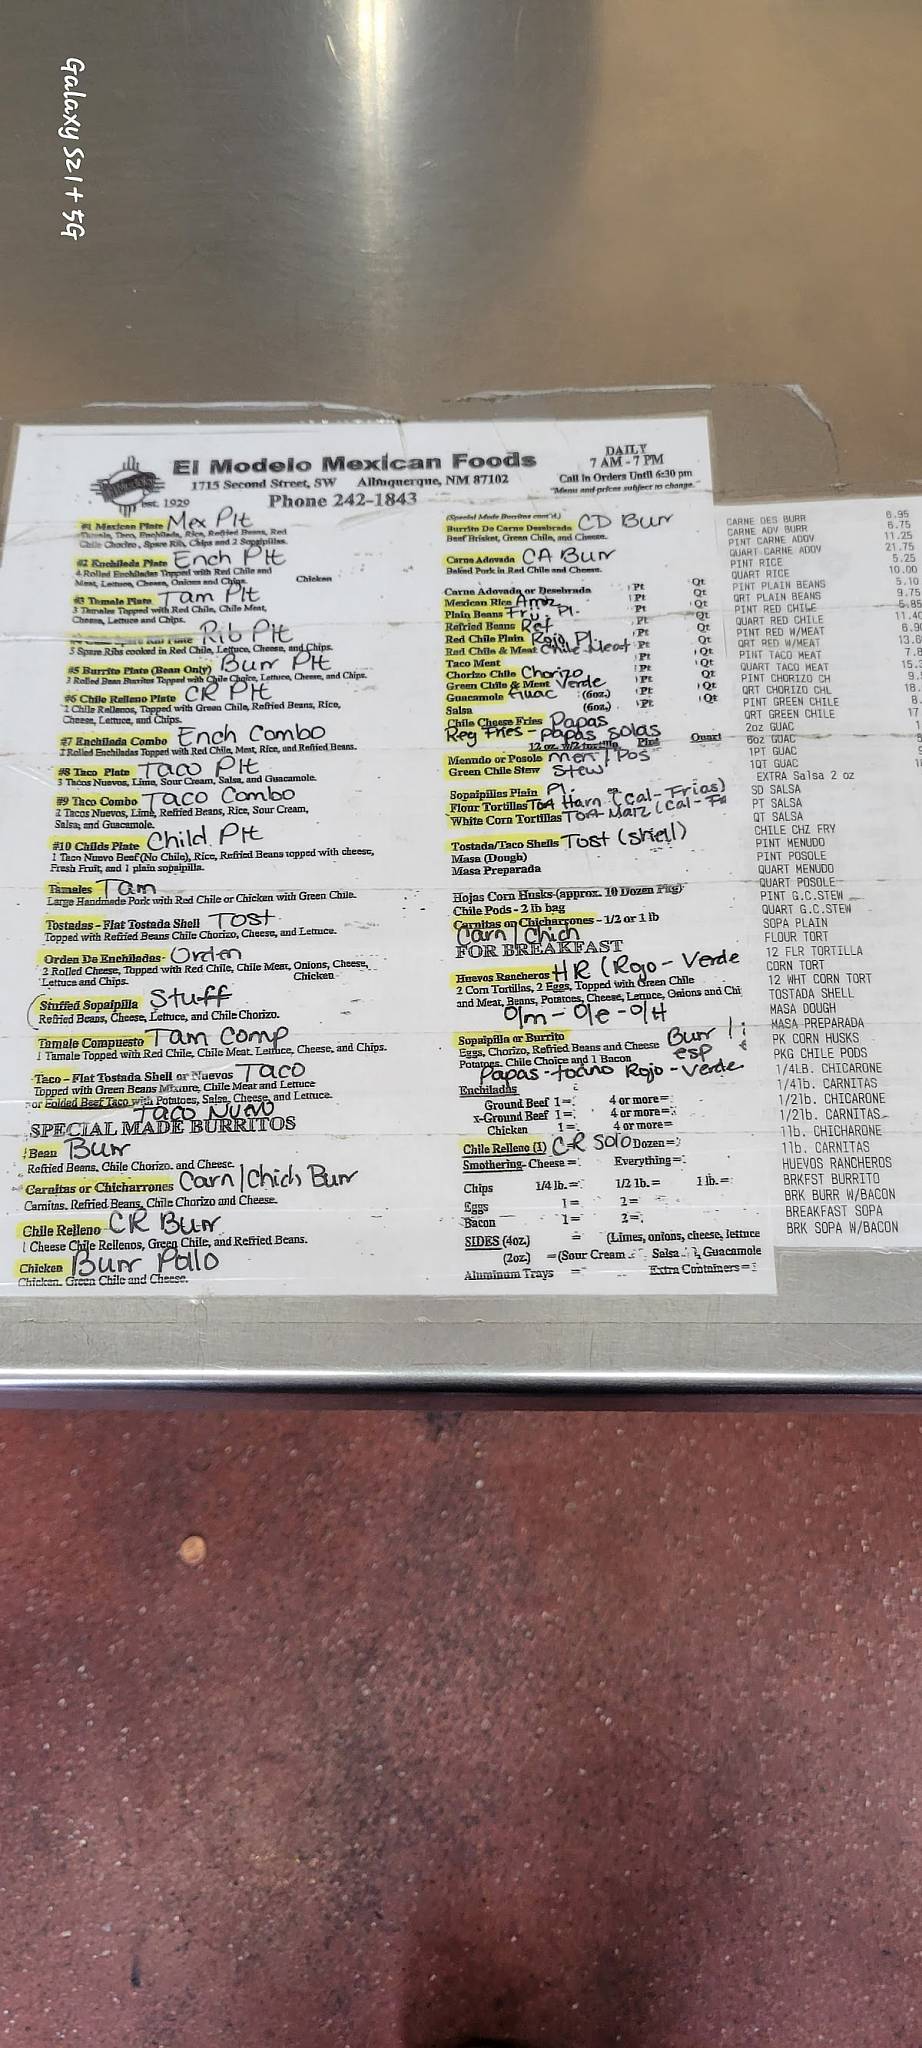 Galaxy S21+ 5G
El Modelo Mexican Foods
1715 Second Street, SW Albuquerque, NM 87102
est. 1929
Phone 242-1843
DAILY
7 AM - 7 PM
Call in Orders Until 6:30 pm
"Menu and prices subject to change."
#1 Mexican Plate Mex Plt
Tamale, Taco, Enchilada, Rice, Refried Beans, Red
Chile Chorizo, Spare Rib, Chips and 2 Sopaipillas.
#2 Enchilada Plate Ench Plt
4 Rolled Enchiladas Topped with Red Chile and
Meat, Lettuce, Cheese, Onions and Chips. Chicken
#3 Tamale Plate Tam Plt
3 Tamales Topped with Red Chile, Chile Meat,
Cheese, Lettuce and Chips.
Rib Plt
3 Spare Ribs cooked in Red Chile, Lettuce, Cheese, and Chips.
#5 Burrito Plate (Bean Only) Burr Plt
3 Rolled Bean Burritos Topped with Chile Choice, Lettuce, Cheese, and Chips.
#6 Chile Relleno Plate CR Plt
2 Chile Rellenos, Topped with Green Chile, Refried Beans, Rice,
Cheese, Lettuce, and Chips.
#7 Enchilada Combo Ench Combo
2 Rolled Enchiladas Topped with Red Chile, Meat, Rice, and Refried Beans.
#8 Taco Plate Taco Plt
3 Tacos Nuevos, Lime, Sour Cream, Salsa, and Guacamole.
#9 Taco Combo Taco Combo
2 Tacos Nuevos, Lime, Refried Beans, Rice, Sour Cream,
Salsa, and Guacamole.
#10 Childs Plate Child Plt
1 Taco Nuevo Beef (No Chile), Rice, Refried Beans topped with cheese,
Fresh Fruit, and 1 plain sopaipilla.
Tamales Tam
Large Handmade Pork with Red Chile or Chicken with Green Chile.
Tostadas - Flat Tostada Shell Tost
Topped with Refried Beans Chile Chorizo, Cheese, and Lettuce.
Orden De Enchiladas- Orden
2 Rolled Cheese, Topped with Red Chile, Chile Meat, Onions, Cheese,
Lettuce and Chips. Chicken
Stuffed Sopaipilla Stuff
Refried Beans, Cheese, Lettuce, and Chile Chorizo.
Tamale Compuesto Tam Comp
1 Tamale Topped with Red Chile, Chile Meat. Lettuce, Cheese, and Chips.
Taco - Flat Tostada Shell or Nuevos Taco
Topped with Green Beans Mixture, Chile Meat and Lettuce
or Folded Beef Taco with Potatoes, Salsa, Cheese, and Lettuce.
Taco Nuevo
SPECIAL MADE BURRITOS
Bean Burr
Refried Beans, Chile Chorizo. and Cheese.
Carnitas or Chicharrones Carn/Chich Burr
Carnitas. Refried Beans, Chile Chorizo and Cheese.
Chile Relleno CR Burr
1 Cheese Chile Rellenos, Green Chile, and Refried Beans.
Chicken Burr Pollo
Chicken. Green Chile and Cheese.
(Special Made Burritos cont'd.)
Burrito De Carne Desebrada CD Burr
Beef Brisket, Green Chile, and Cheese.
Carne Adovada CA Burr
Baked Pork in Red Chile and Cheese.
Carne Adovada or Desebrada Pt Qt
Mexican Rice Arroz Pt Qt
Plain Beans Pl. Pt Qt
Refried Beans Ref Pt Qt
Red Chile Plain Rojo Pl Pt Qt
Red Chile & Meat Chile Meat Pt Qt
Taco Meat Pt Qt
Chorizo Chile Chorizo Pt Qt
Green Chile & Meat Verde Pt Qt
Guacamole Guac (6oz.) Pt Qt
Salsa (6oz.) Pt
Chile Cheese Fries Papas
Reg Fries - papas solas
12 oz. Pint Quart
Menudo or Posole Men/Pos
Green Chile Stew Stew
Sopaipillas Plain Pl.
Flour Tortillas Tort Harn (Cal-Frias)
White Corn Tortillas Tort Maiz (Cal-
Tostada/Taco Shells Tost (shell)
Masa (Dough)
Masa Preparada
Hojas Corn Husks-(approx. 10 Dozen Pkg)
Chile Pods - 2 lb bag
Carnitas or Chicharrones - 1/2 or 1 lb
Carn/Chich
FOR BREAKFAST
Huevos Rancheros HR (Rojo - Verde
2 Corn Tortillas, 2 Eggs, Topped with Green Chile
and Meat, Beans, Potatoes, Cheese, Lettuce, Onions and Chi
O/m - O/e - O/H
Sopaipilla or Burrito Burr
Eggs, Chorizo, Refried Beans and Cheese esp
Potatoes. Chile Choice and 1 Bacon
Papas - tocino Rojo - Verde
Enchiladas
Ground Beef 1= 4 or more=
x-Ground Beef 1= 4 or more=
Chicken 1= 4 or more=
Chile Relleno (1) CR Solo Dozen=
Smothering- Cheese= Everything=
Chips 1/4 lb.= 1/2 lb.= 1 lb.=
Eggs 1= 2=
Bacon 1= 2=
SIDES (4oz.) = (Limes, onions, cheese, lettuce
(2oz.) =(Sour Cream Salsa Guacamole
Aluminum Trays = Extra Containers=
CARNE DES BURR 6.95
CARNE ADV BURR 6.75
PINT CARNE ADOV 11.25
QUART CARNE ADOV 21.75
PINT RICE 5.25
QUART RICE 10.00
PINT PLAIN BEANS 5.10
QRT PLAIN BEANS 9.75
PINT RED CHILE 5.85
QUART RED CHILE 11.40
PINT RED W/MEAT 6.90
QRT RED W/MEAT 13.6
PINT TACO MEAT 7.8
QUART TACO MEAT 15.
PINT CHORIZO CH 9.
QRT CHORIZO CHL 18.
PINT GREEN CHILE 8.
QRT GREEN CHILE 17
2oz GUAC 1
6oz GUAC
1PT GUAC
1QT GUAC
EXTRA Salsa 2 oz
SD SALSA
PT SALSA
QT SALSA
CHILE CHZ FRY
PINT MENUDO
PINT POSOLE
QUART MENUDO
QUART POSOLE
PINT G.C.STEW
QUART G.C.STEW
SOPA PLAIN
FLOUR TORT
12 FLR TORTILLA
CORN TORT
12 WHT CORN TORT
TOSTADA SHELL
MASA DOUGH
MASA PREPARADA
PK CORN HUSKS
PKG CHILE PODS
1/4LB. CHICARONE
1/4lb. CARNITAS
1/2lb. CHICARONE
1/2lb. CARNITAS
1lb. CHICHARONE
1lb. CARNITAS
HUEVOS RANCHEROS
BRKFST BURRITO
BRK BURR W/BACON
BREAKFAST SOPA
BRK SOPA W/BACON